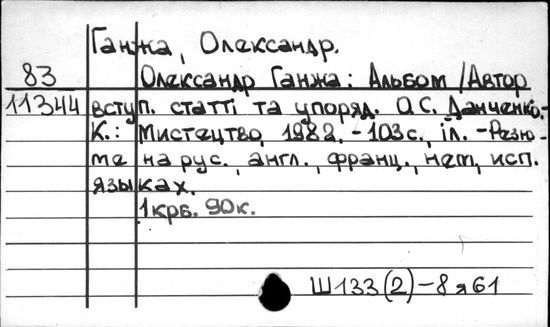 Ганжа, Олександр.
83 Олександр Ганжа: Альбом / Автор
11344 вступ. статті та упоряд. О.С. Данченко.-
К.: Мистецтво, 1982. - 103с., іл. - Резю-
ме на рус., англ., франц., нем, исп.
языках.
1крб. 90к.
Ш133(2)-8я61